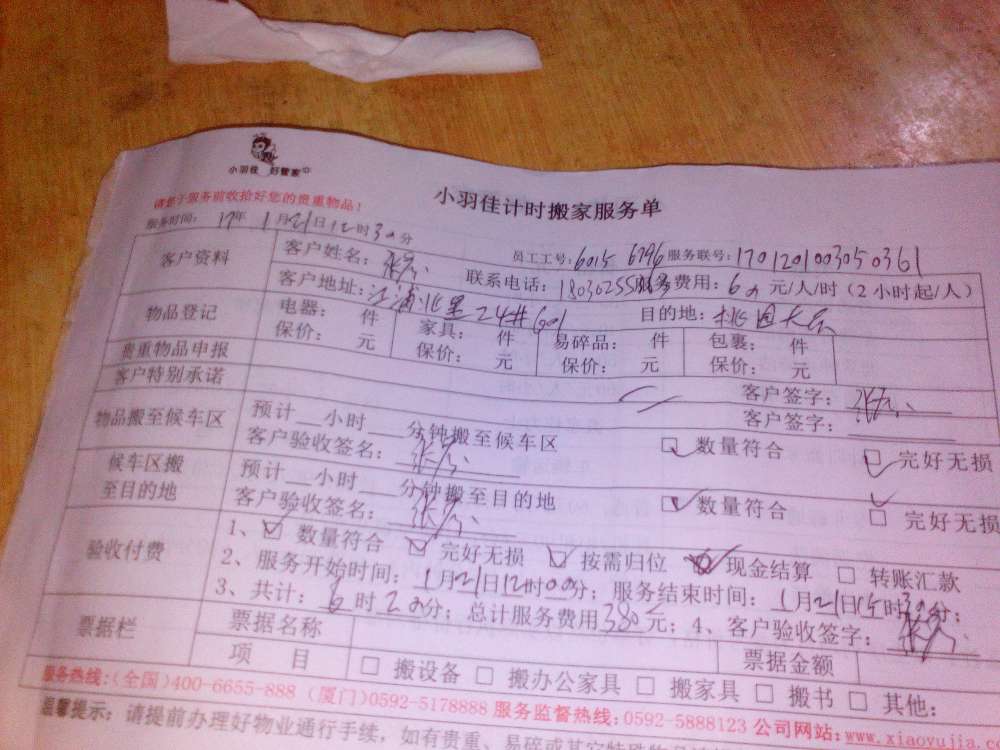 小羽佳 好管家
小羽佳计时搬家服务单
请您于服务前收拾好您的贵重物品！
服务时间： 17年 1月21日12时30分
员工工号：6015 6796 服务联号：1701201003050361
客户资料 客户姓名： 联系电话： 服务费用：60 元/人/时（2小时起/人）
客户地址： 24#601 目的地：
物品登记 电器： 件 家具： 件 易碎品： 件 包裹： 件
保价： 元 保价： 元 保价： 元 保价： 元
贵重物品申报 客户签字：
客户特别承诺 客户签字：
物品搬至候车区 预计__小时__分钟搬至候车区 数量符合 完好无损
客户验收签名：
候车区搬至目的地 预计__小时__分钟搬至目的地 数量符合 完好无损
客户验收签名：
验收付费 1、 数量符合 完好无损 按需归位 现金结算 转账汇款
2、服务开始时间：1月21日12时00分；服务结束时间：1月21日15时30分；
3、共计：6时20分；总计服务费用380元；4、客户验收签字：
票据栏 票据名称 票据金额
项 目 搬设备 搬办公家具 搬家具 搬书 其他：
服务热线：（全国）400-6655-888（厦门）0592-5178888 服务监督热线：0592-5888123 公司网站：www.xiaoyujia.co
温馨提示：请提前办理好物业通行手续，如有贵重、易碎或其它特殊物品